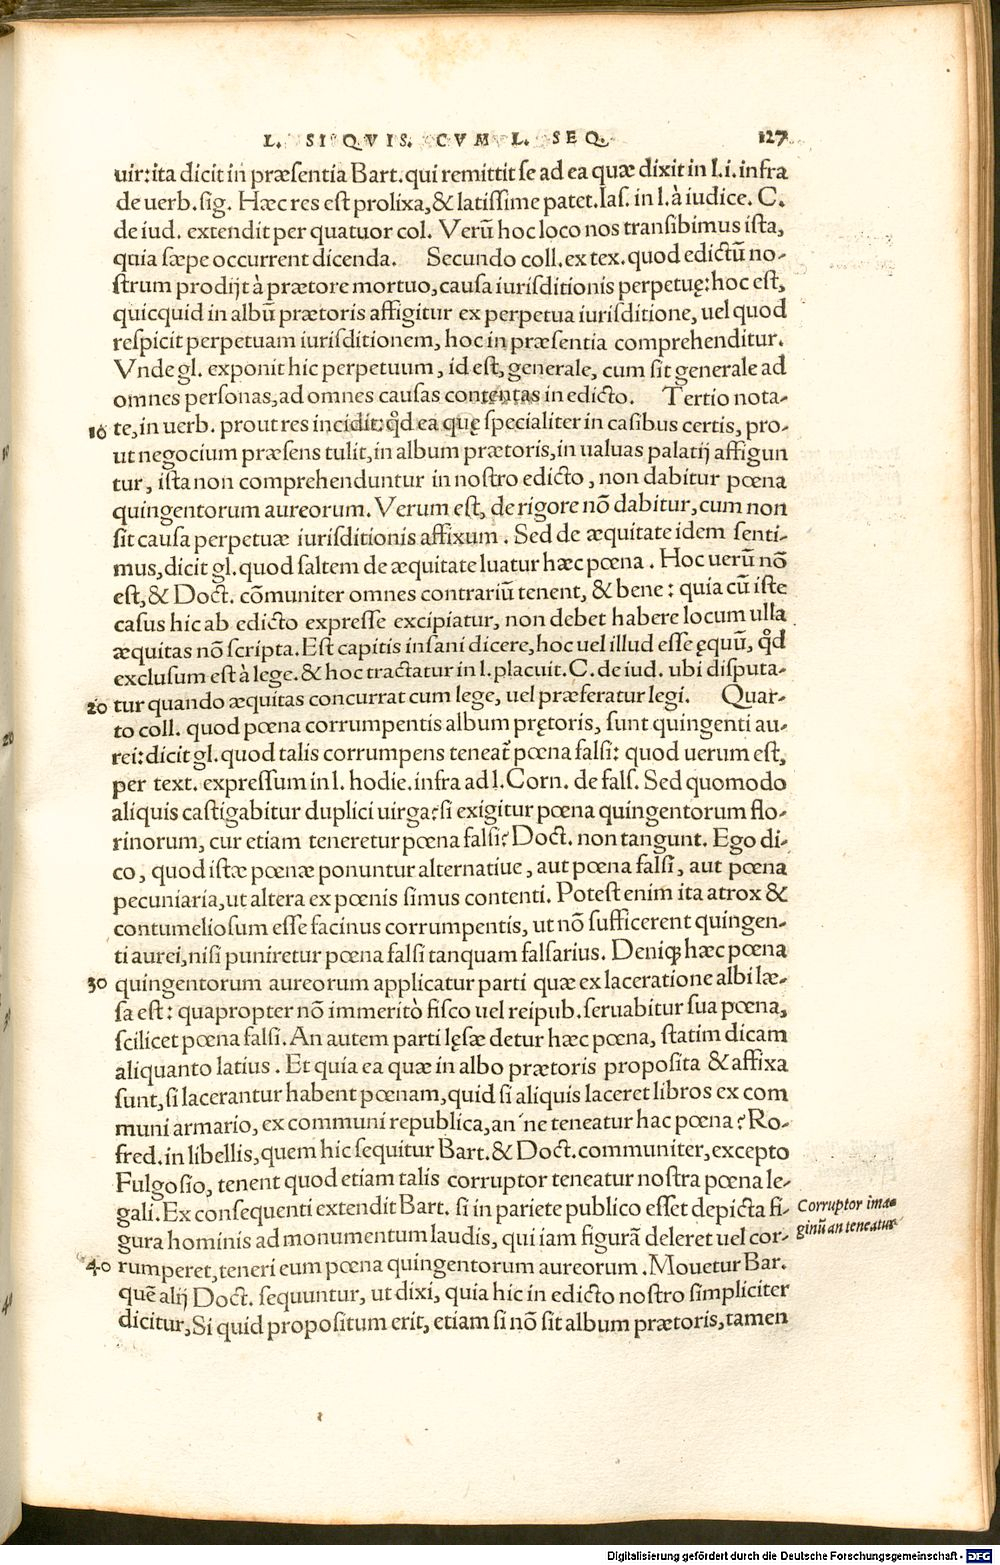 L. SI QVIS. CVM L. SEQ. 127
uir: ita dicit in præsentia Bart. qui remittit se ad ea quæ dixit in l. i. infra
de uerb. sig. Hæc res est prolixa, & latissime patet. Ias. in l. à iudice. C.
de iud. extendit per quatuor col. Verũ hoc loco nos transibimus ista,
quia sæpe occurrent dicenda. Secundo coll. ex tex. quod edictũ no-
strum prodijt à prætore mortuo, causa iurisditionis perpetuę: hoc est,
quicquid in albũ prætoris affigitur ex perpetua iurisditione, uel quod
respicit perpetuam iurisditionem, hoc in præsentia comprehenditur.
Vnde gl. exponit hic perpetuum, id est, generale, cum sit generale ad
omnes personas, ad omnes causas contentas in edicto. Tertio nota-
10 te, in uerb. prout res incidit: qđ ea quę specialiter in casibus certis, pro-
ut negocium præsens tulit, in album prætoris, in ualuas palatij affigun
tur, ista non comprehenduntur in nostro edicto, non dabitur pœna
quingentorum aureorum. Verum est, de rigore nõ dabitur, cum non
sit causa perpetuæ iurisditionis affixum. Sed de æquitate idem senti-
mus, dicit gl. quod saltem de æquitate luatur hæc pœna. Hoc uerũ nõ
est, & Doct. cõmuniter omnes contrariũ tenent, & bene: quia cũ iste
casus hic ab edicto expresse excipiatur, non debet habere locum ulla
æquitas nõ scripta. Est capitis insani dicere, hoc uel illud esse ęquũ, qđ
exclusum est à lege. & hoc tractatur in l. placuit. C. de iud. ubi disputa-
20 tur quando æquitas concurrat cum lege, uel præferatur legi. Quar-
to coll. quod pœna corrumpentis album prętoris, sunt quingenti au-
rei: dicit gl. quod talis corrumpens teneat᷑ pœna falsi: quod uerum est,
per text. expressum in l. hodie. infra ad l. Corn. de fals. Sed quomodo
aliquis castigabitur duplici uirga? si exigitur pœna quingentorum flo-
rinorum, cur etiam teneretur pœna falsi? Doct. non tangunt. Ego di-
co, quod istæ pœnæ ponuntur alternatiue, aut pœna falsi, aut pœna
pecuniaria, ut altera ex pœnis simus contenti. Potest enim ita atrox &
contumeliosum esse facinus corrumpentis, ut nõ sufficerent quingen-
ti aurei, nisi puniretur pœna falsi tanquam falsarius. Deniqꝫ hæc pœna
30 quingentorum aureorum applicatur parti quæ ex laceratione albi læ-
sa est: quapropter nõ immeritò fisco uel reipub. seruabitur sua pœna,
scilicet pœna falsi. An autem parti lęsæ detur hæc pœna, statim dicam
aliquanto latius. Et quia ea quæ in albo prætoris proposita & affixa
sunt, si lacerantur habent pœnam, quid si aliquis laceret libros ex com
muni armario, ex communi republica, an´ne teneatur hac pœna? Ro-
fred. in libellis, quem hic sequitur Bart. & Doct. communiter, excepto
Fulgosio, tenent quod etiam talis corruptor teneatur nostra pœna le-
gali. Ex consequenti extendit Bart. si in pariete publico esset depicta fi-
gura hominis ad monumentum laudis, qui iam figurã deleret uel cor-
40 rumperet, teneri eum pœna quingentorum aureorum. Mouetur Bar.
quẽ alij Doct. sequuntur, ut dixi, quia hic in edicto nostro simpliciter
dicitur, Si quid propositum erit, etiam si nõ sit album prætoris, tamen
Corruptor ima-
ginũ an teneatur
Digitalisierung gefördert durch die Deutsche Forschungsgemeinschaft - DFG